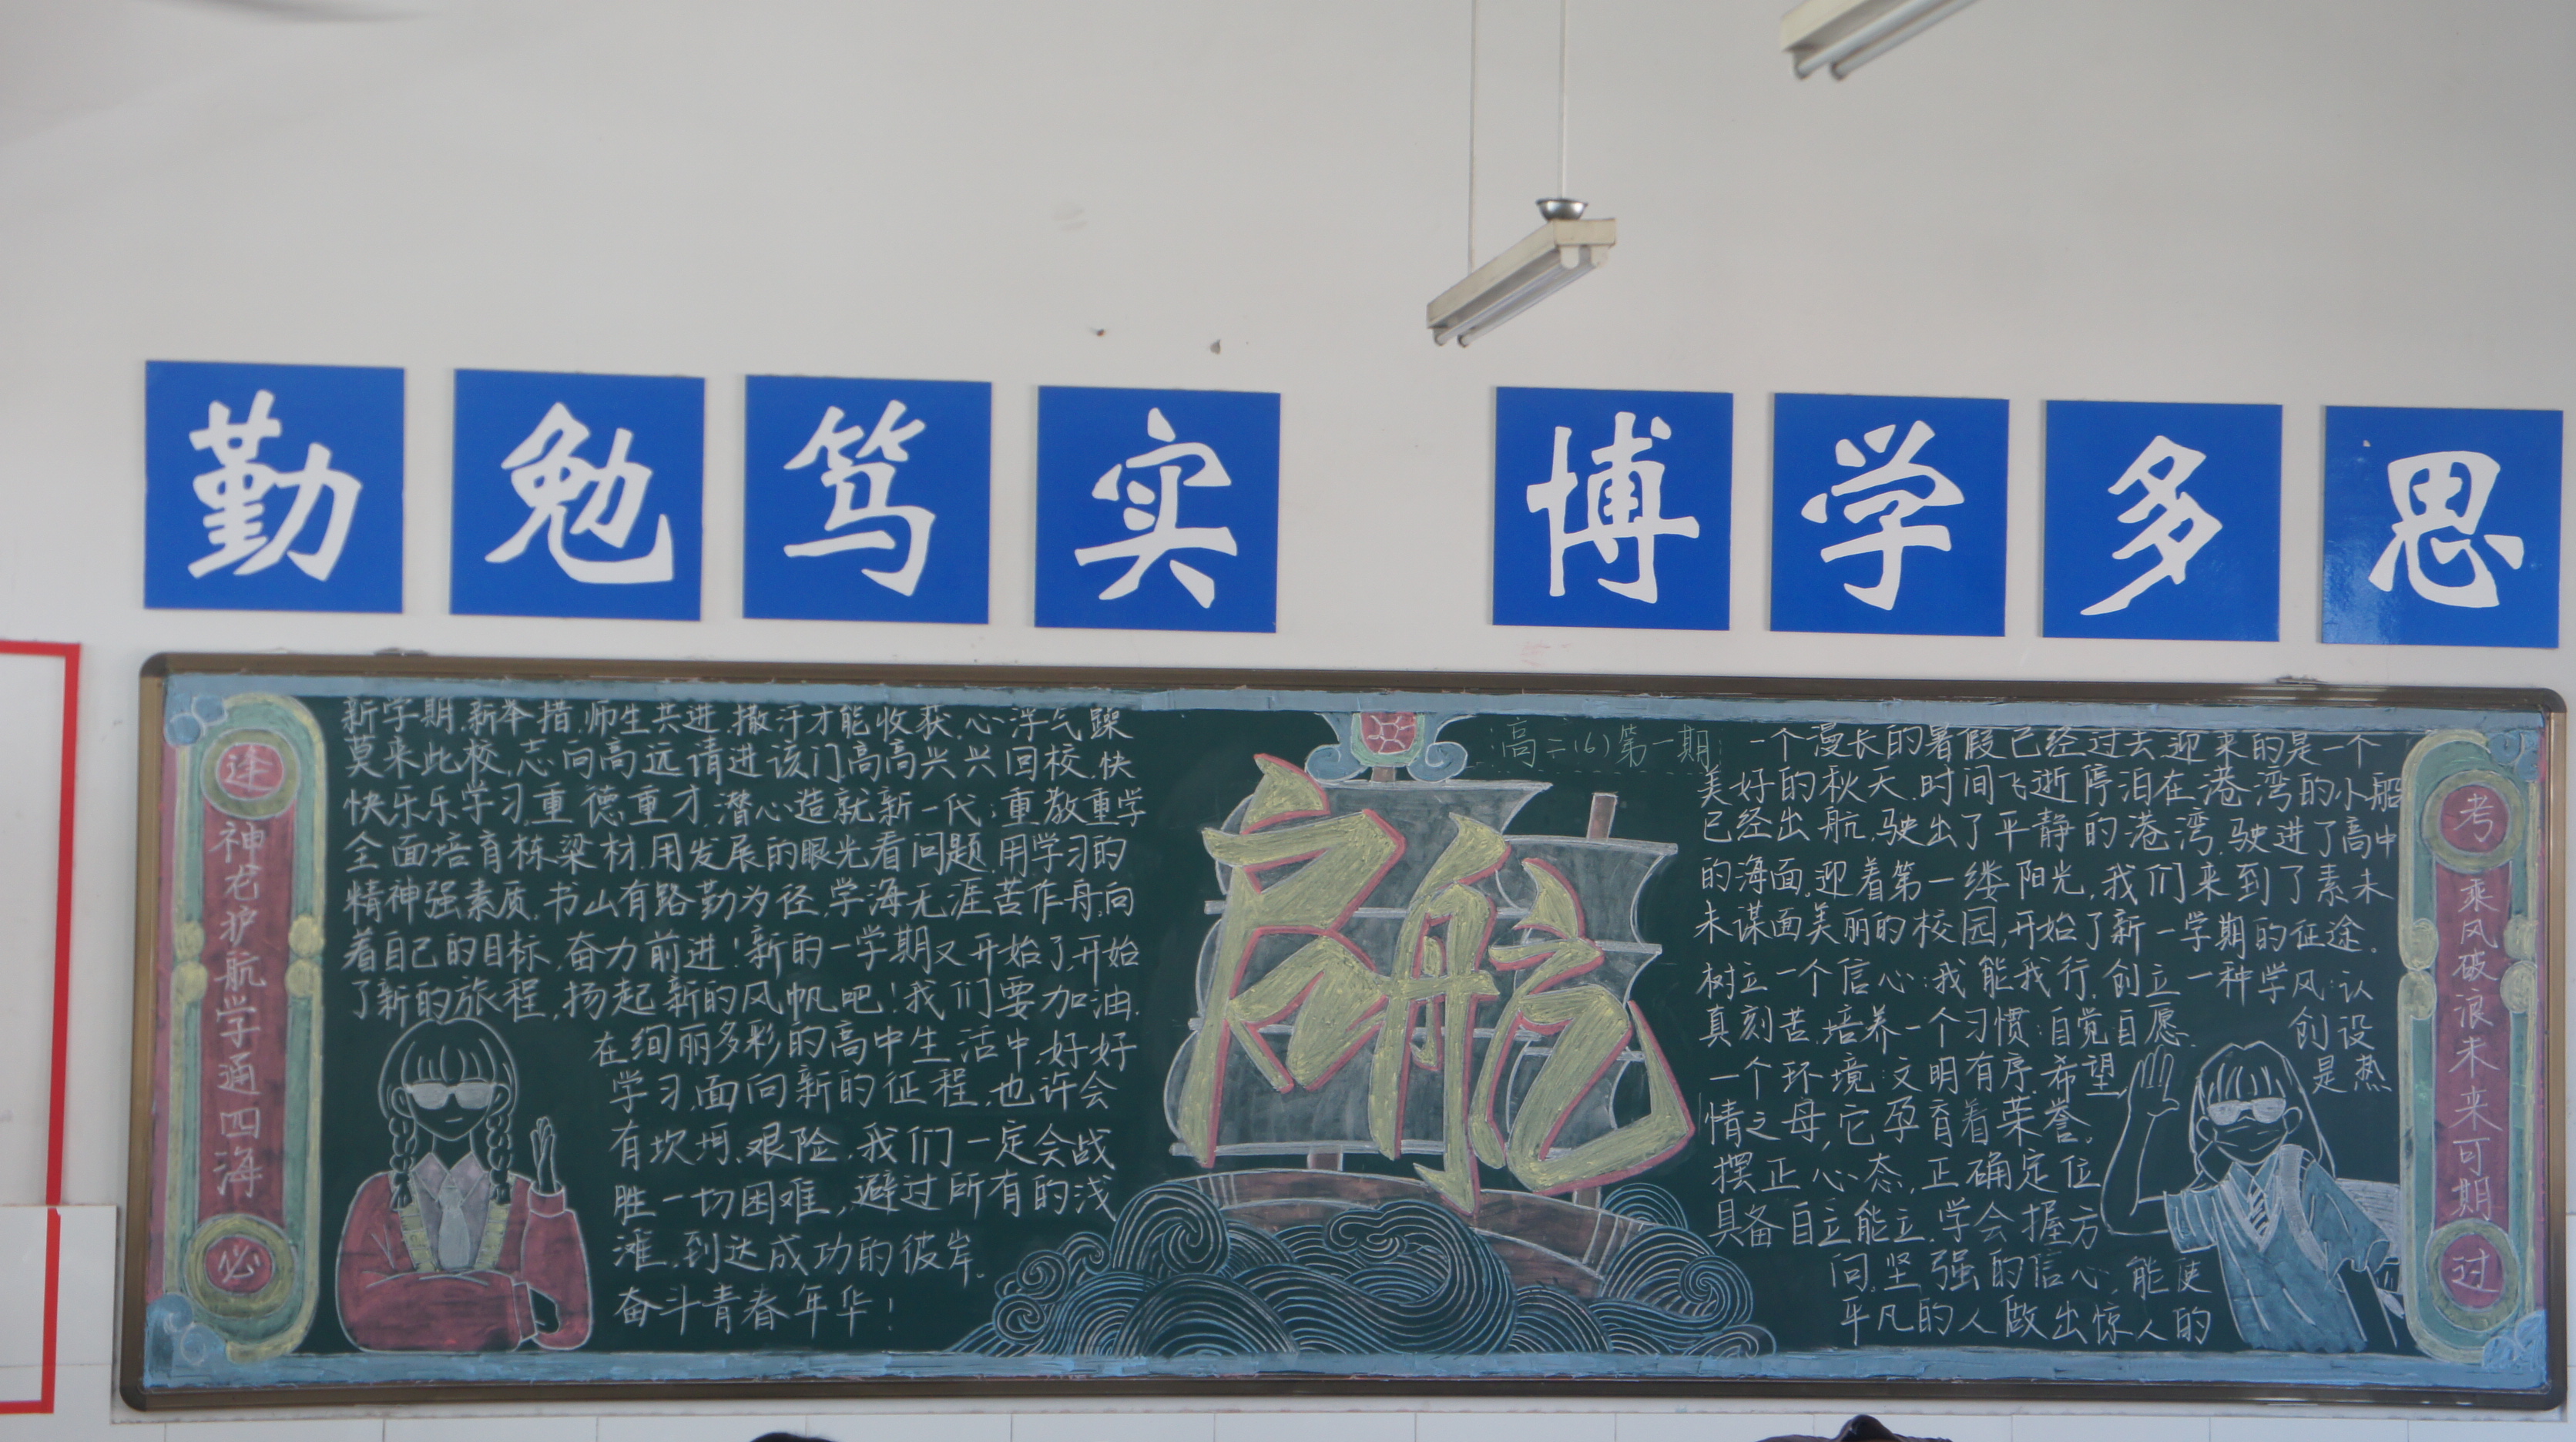 勤勉笃实 博学多思
逢
神龙护航学通四海
必
新学期,新举措,师生共进,撒汗才能收获,心浮气躁
莫来此校,志向高远请进该门,高高兴兴回校,快
快乐乐学习,重德重才,潜心造就新一代;重教重学
全面培育栋梁材.用发展的眼光看问题,用学习的
精神强素质,书山有路勤为径,学海无涯苦作舟,向
着自己的目标,奋力前进!新的一学期又开始了,开始
了新的旅程,扬起新的风帆吧!我们要加油.
在绚丽多彩的高中生活中,好好
学习,面向新的征程,也许会
有坎坷、艰险,我们一定会战
胜一切困难,避过所有的浅
滩,到达成功的彼岸.
奋斗青春年华!
启航
高二(6)第一期
一个漫长的暑假已经过去,迎来的是一个
美好的秋天.时间飞逝,停泊在港湾的小船
已经出航,驶出了平静的港湾,驶进了高中
的海面,迎着第一缕阳光,我们来到了素未
未谋面美丽的校园,开始了新一学期的征途.
树立一个信心:我能我行.创立一种学风:认
真刻苦.培养一个习惯:自觉自愿. 创设
一个环境:文明有序.希望 是热
情之母,它孕育着荣誉.
摆正心态,正确定位
具备自立能立,学会握方
向.坚强的信心,能使
平凡的人做出惊人的
考
乘风破浪未来可期
过